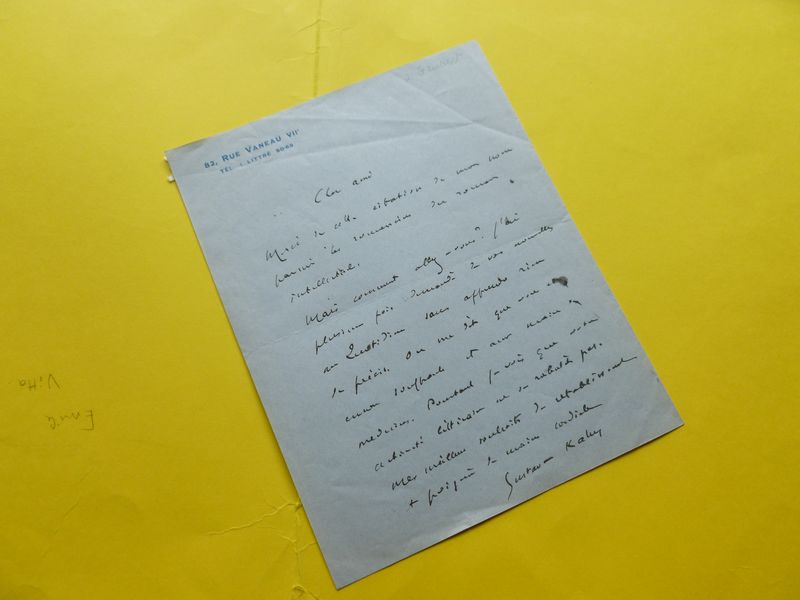 82, RUE VANEAU VIIe
TÉL : LITTRÉ
Cher ami
Merci de cette citation de mon nom
parmi les romanciers du roman
intellectuel.
Mais comment allez-vous? J'ai
plusieurs fois demandé de vos nouvelles
au Quotidien sans apprendre rien
de précis. On me dit que vous
souffrant et aux mains
médecins. Pourtant je vois que votre
activité littéraire ne se ralentit pas.
Mes meilleurs souhaits de rétablissement
+ poignée de main cordiale
Gustave Kahn
Emile
Vitta